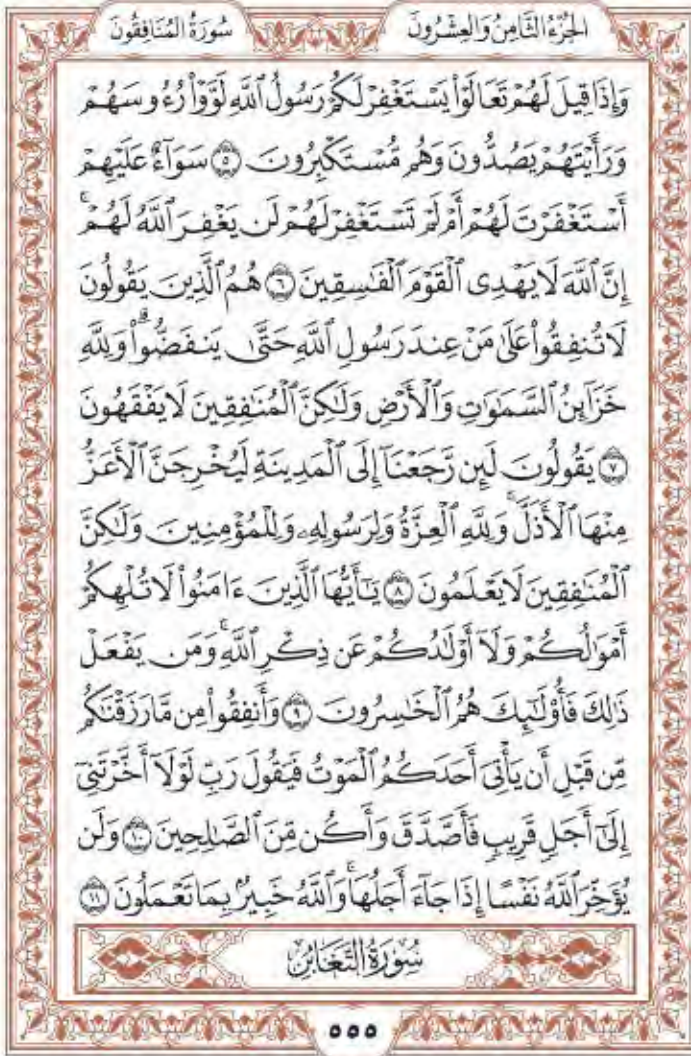 الجُزْءُ الثَّامِنُ وَالعِشْرُونَ سُورَةُ المُنَافِقُونَ
وَإِذَا قِيلَ لَهُمْ تَعَالَوْاْ يَسْتَغْفِرْ لَكُمْ رَسُولُ ٱللَّهِ لَوَّوْاْ رُءُوسَهُمْ
وَرَأَيْتَهُمْ يَصُدُّونَ وَهُم مُّسْتَكْبِرُونَ ۝٥ سَوَآءٌ عَلَيْهِمْ
أَسْتَغْفَرْتَ لَهُمْ أَمْ لَمْ تَسْتَغْفِرْ لَهُمْ لَن يَغْفِرَ ٱللَّهُ لَهُمْۚ
إِنَّ ٱللَّهَ لَا يَهْدِى ٱلْقَوْمَ ٱلْفَٰسِقِينَ ۝٦ هُمُ ٱلَّذِينَ يَقُولُونَ
لَا تُنفِقُواْ عَلَىٰ مَنْ عِندَ رَسُولِ ٱللَّهِ حَتَّىٰ يَنفَضُّواْۗ وَلِلَّهِ
خَزَآئِنُ ٱلسَّمَٰوَٰتِ وَٱلْأَرْضِ وَلَٰكِنَّ ٱلْمُنَٰفِقِينَ لَا يَفْقَهُونَ
۝٧ يَقُولُونَ لَئِن رَّجَعْنَآ إِلَى ٱلْمَدِينَةِ لَيُخْرِجَنَّ ٱلْأَعَزُّ
مِنْهَا ٱلْأَذَلَّۚ وَلِلَّهِ ٱلْعِزَّةُ وَلِرَسُولِهِۦ وَلِلْمُؤْمِنِينَ وَلَٰكِنَّ
ٱلْمُنَٰفِقِينَ لَا يَعْلَمُونَ ۝٨ يَٰٓأَيُّهَا ٱلَّذِينَ ءَامَنُواْ لَا تُلْهِكُمْ
أَمْوَٰلُكُمْ وَلَآ أَوْلَٰدُكُمْ عَن ذِكْرِ ٱللَّهِۚ وَمَن يَفْعَلْ
ذَٰلِكَ فَأُوْلَٰٓئِكَ هُمُ ٱلْخَٰسِرُونَ ۝٩ وَأَنفِقُواْ مِن مَّا رَزَقْنَٰكُم
مِّن قَبْلِ أَن يَأْتِىَ أَحَدَكُمُ ٱلْمَوْتُ فَيَقُولَ رَبِّ لَوْلَآ أَخَّرْتَنِىٓ
إِلَىٰٓ أَجَلٍ قَرِيبٍ فَأَصَّدَّقَ وَأَكُن مِّنَ ٱلصَّٰلِحِينَ ۝١٠ وَلَن
يُؤَخِّرَ ٱللَّهُ نَفْسًا إِذَا جَآءَ أَجَلُهَاۚ وَٱللَّهُ خَبِيرٌۢ بِمَا تَعْمَلُونَ ۝١١
سُورَةُ التَّغَابُنِ
٥٥٥